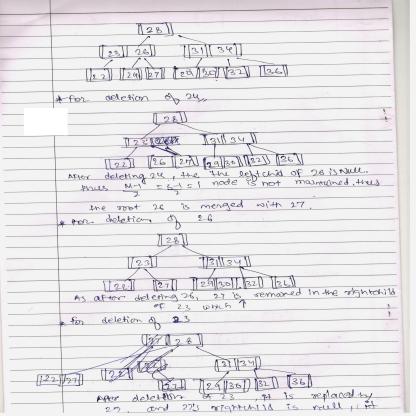 28
23 26 31 34
22 24 27 29 30 32 36
* for deletion of 24
28
31 34
22 26 27 29 30 32 36
After deleting 24, the the left child of 26 is Null.
thus = 1 node is not maintained. thus
the root 26 is merged with 27.
* for deletion of 26
28
23 31 34
22 27 29 30 32 36
As after deleting 26, 27 is remained in the right child
of 23 which
* for deletion of 23
27 28
31 34
22 27 22 27 29 30 32 36
After deletion of 23, it is replaced by
27 and 27's right child is null, it